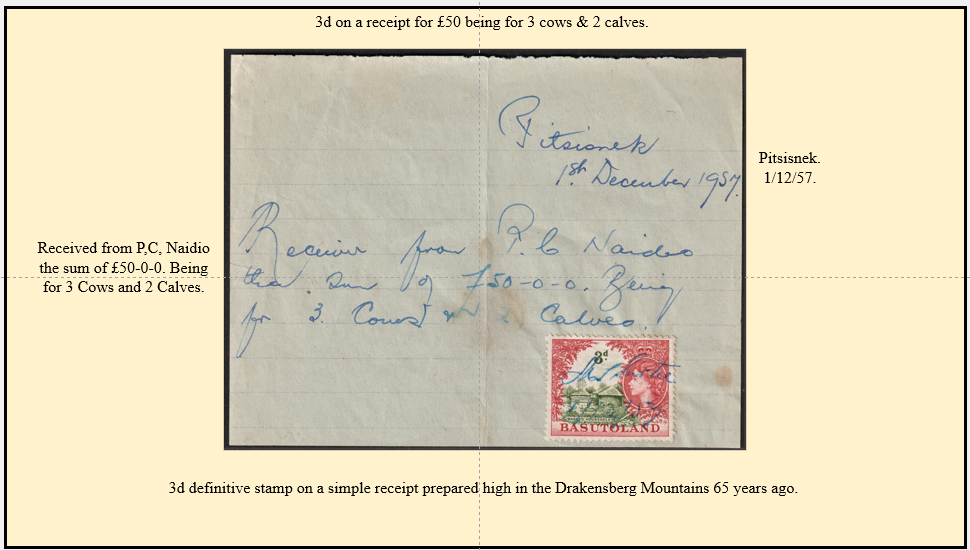 3d on a receipt for £50 being for 3 cows & 2 calves.
Pitsisnek
1st. December 1957.
Pitsisnek.
1/12/57.
Received from P,C, Naidio
the sum of £50-0-0. Being
for 3 Cows and 2 Calves.
Receiver from P. C Naidoo
the sum of £50-0-0. Being
for 3. Cows & 2 Calves.
3d
BASUTOLAND
3d definitive stamp on a simple receipt prepared high in the Drakensberg Mountains 65 years ago.